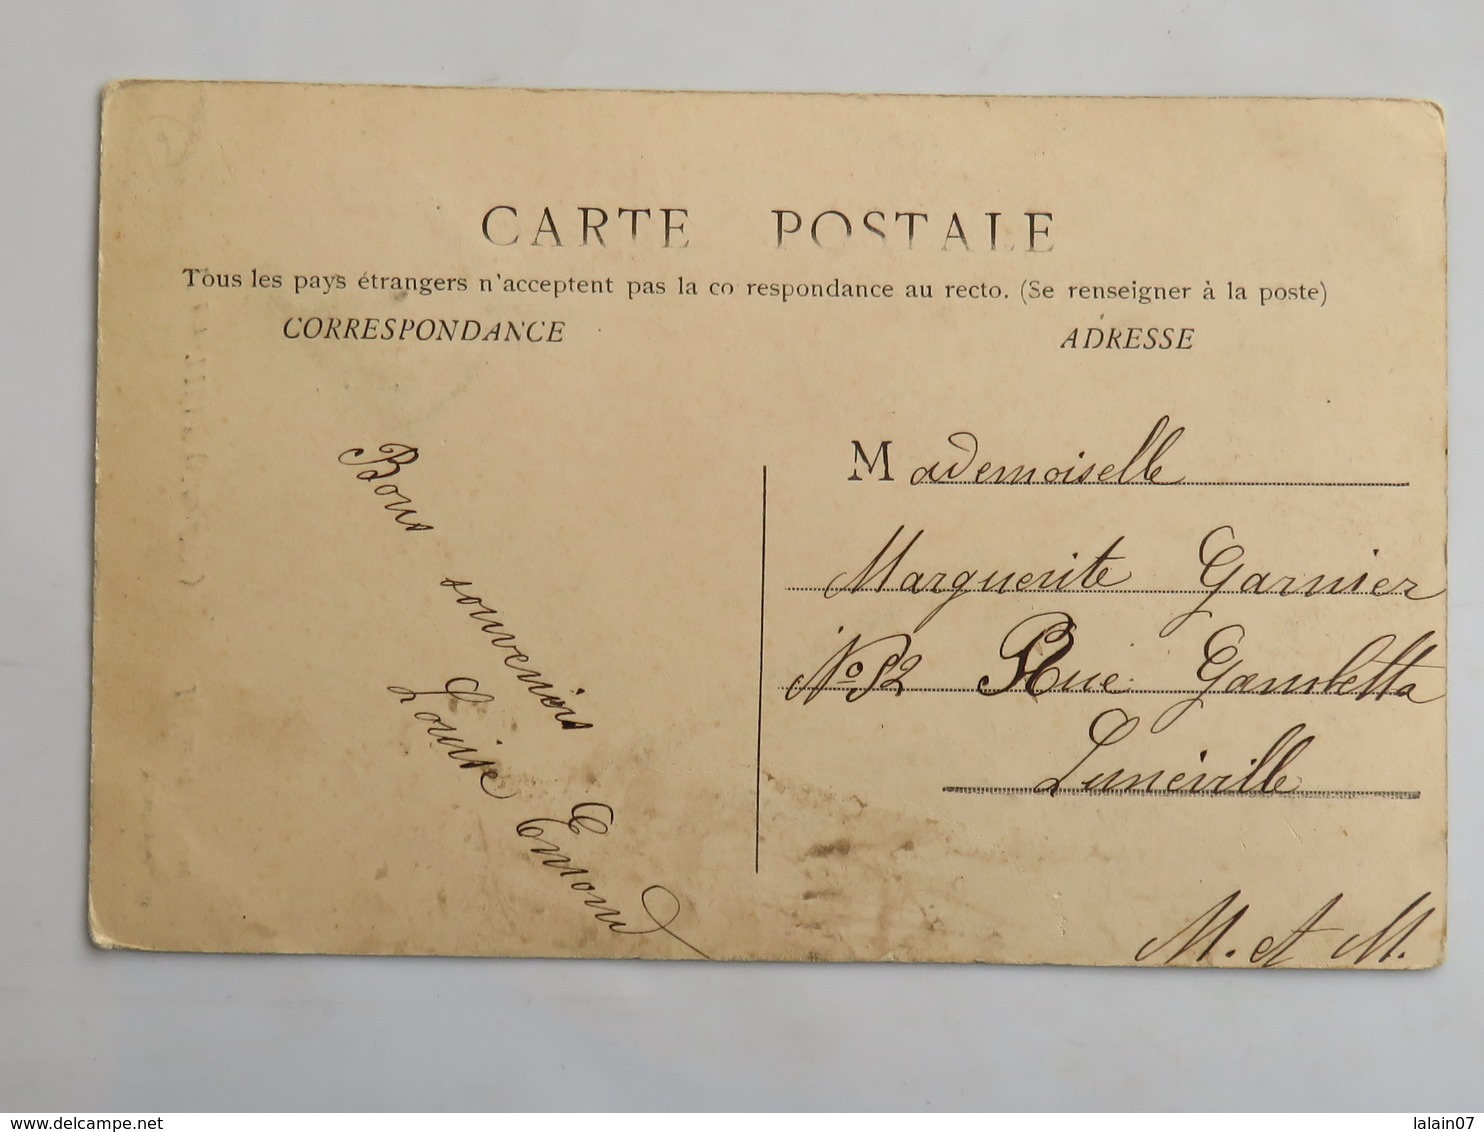 CARTE POSTALE
Tous les pays étrangers n'acceptent pas la co respondance au recto. (Se renseigner à la poste)
CORRESPONDANCE
ADRESSE
Bons souvenirs
Louise
Mademoiselle
Marguerite Garnier
No 52 Rue Gambetta
Lunéville
M. et M.
delcampe.net
lalain07